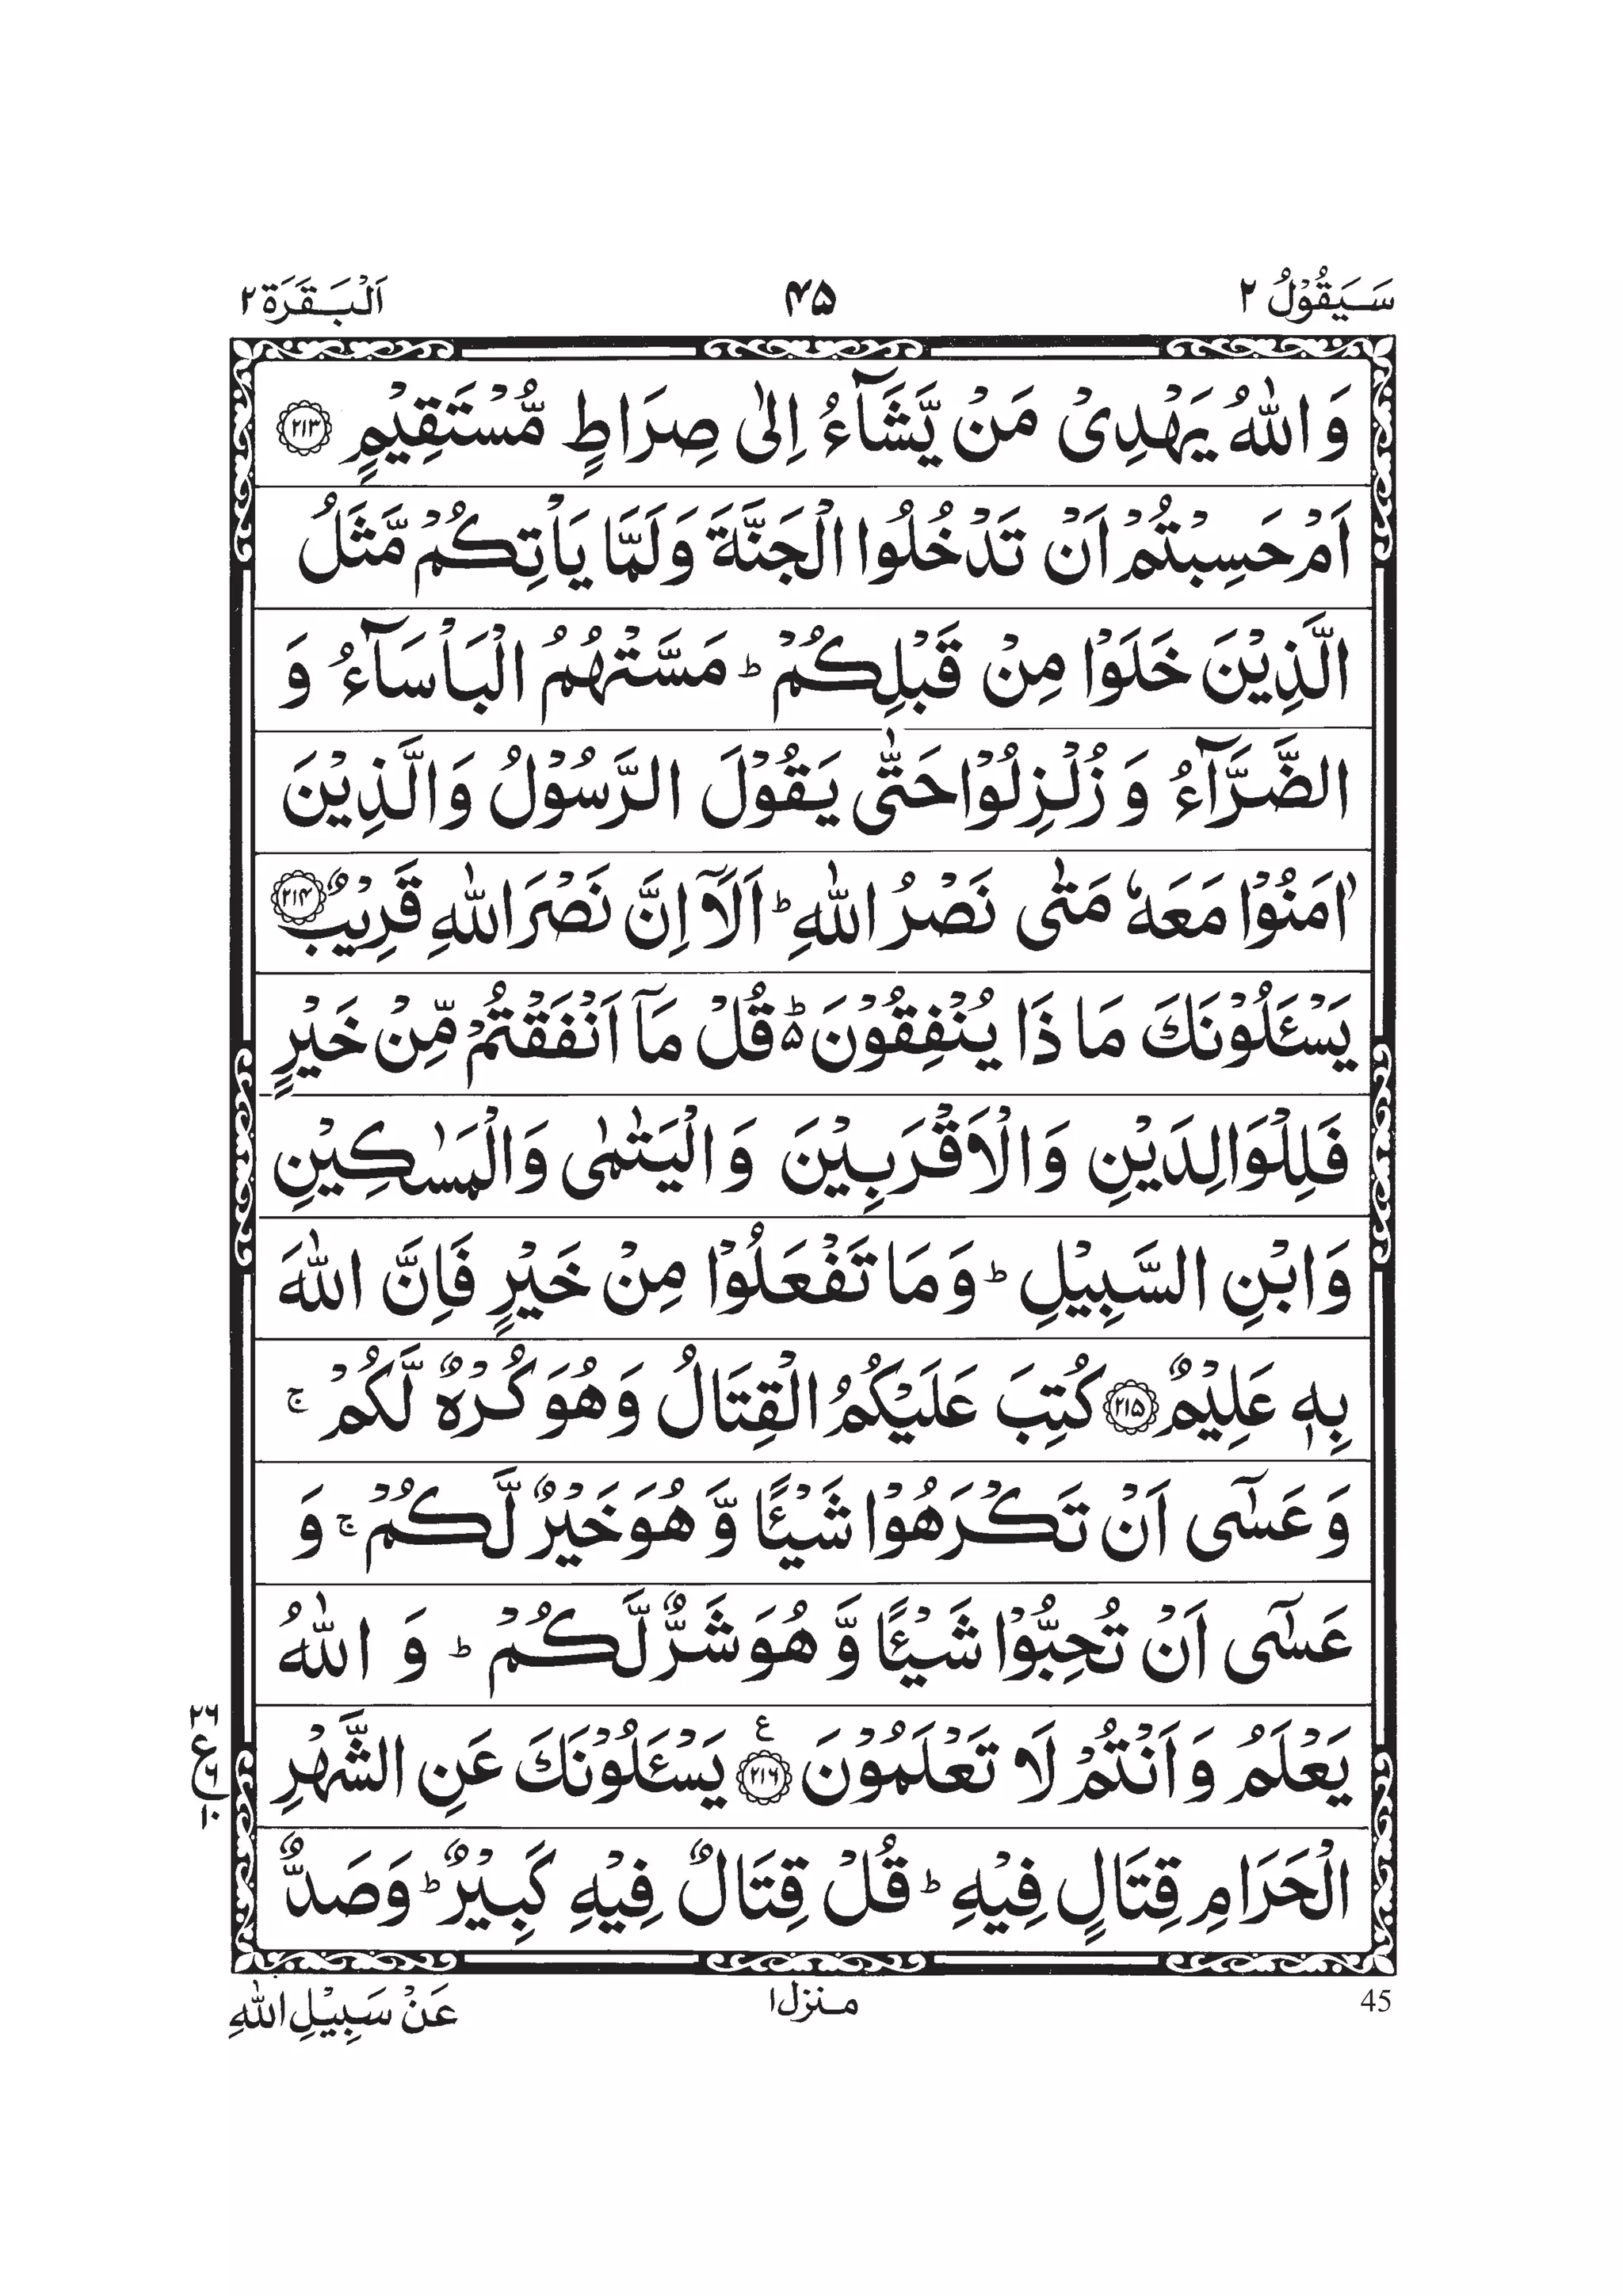 سَيَقُوْلُ ٢
۴۵
اَلْبَقَرَة ٢
وَ اللّٰهُ يَهْدِیْ مَنْ يَّشَآءُ اِلٰی صِرَاطٍ مُّسْتَقِيْمٍ ﴿۲۱۳﴾
اَمْ حَسِبْتُمْ اَنْ تَدْخُلُوا الْجَنَّةَ وَلَمَّا يَاْتِكُمْ مَّثَلُ
الَّذِيْنَ خَلَوْا مِنْ قَبْلِكُمْ ؕ مَسَّتْهُمُ الْبَاْسَآءُ وَ
الضَّرَّآءُ وَ زُلْزِلُوْا حَتّٰی يَقُوْلَ الرَّسُوْلُ وَالَّذِيْنَ
اٰمَنُوْا مَعَهٗ مَتٰی نَصْرُ اللّٰهِ ؕ اَلَاۤ اِنَّ نَصْرَ اللّٰهِ قَرِيْبٌ ﴿۲۱۴﴾
يَسْـَٔلُوْنَكَ مَا ذَا يُنْفِقُوْنَ ؕ۵ قُلْ مَاۤ اَنْفَقْتُمْ مِّنْ خَيْرٍ
فَلِلْوَالِدَيْنِ وَالْاَقْرَبِيْنَ وَالْيَتٰمٰی وَالْمَسٰكِيْنِ
وَابْنِ السَّبِيْلِ ؕ وَمَا تَفْعَلُوْا مِنْ خَيْرٍ فَاِنَّ اللّٰهَ
بِهٖ عَلِيْمٌ ﴿۲۱۵﴾ كُتِبَ عَلَيْكُمُ الْقِتَالُ وَهُوَ كُرْهٌ لَّكُمْ ۚ
وَعَسٰۤی اَنْ تَكْرَهُوْا شَيْـًٔا وَّهُوَ خَيْرٌ لَّكُمْ ۚ وَ
عَسٰۤی اَنْ تُحِبُّوْا شَيْـًٔا وَّهُوَ شَرٌّ لَّكُمْ ؕ وَ اللّٰهُ
يَعْلَمُ وَاَنْتُمْ لَا تَعْلَمُوْنَ ﴿۲۱۶﴾ ع يَسْـَٔلُوْنَكَ عَنِ الشَّهْرِ
۲۶
ع
۶
۱۰
الْحَرَامِ قِتَالٍ فِيْهِ ؕ قُلْ قِتَالٌ فِيْهِ كَبِيْرٌ ؕ وَصَدٌّ
45
منزل ۱
عَنْ سَبِيْلِ اللّٰهِ